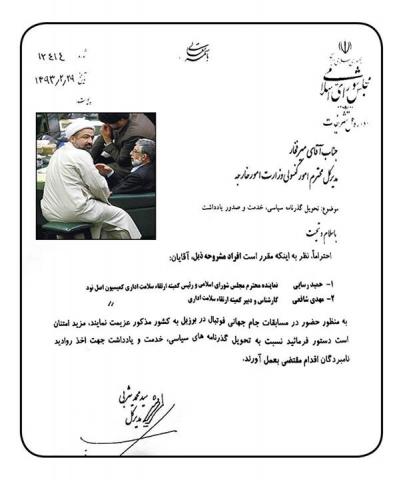 باسمه تعالی
جمهوری اسلامی ایران
مجلس شورای اسلامی
اداره کل تشریفات
شماره ۱۲۴۱۴
تاریخ ۱۳۹۳/۲/۲۹
جناب آقای میرفخار
مدیرکل محترم امور کنسولی وزارت امور خارجه
موضوع: تحویل گذرنامه سیاسی، خدمت و صدور یادداشت
با سلام و تحیت
احتراماً، نظر به اینکه مقرر است افراد مشروحه ذیل، آقایان:
۱- حمید رسایی نماینده محترم مجلس شورای اسلامی و رئیس کمیته ارتقاء سلامت اداری کمیسیون اصل نود
۲- مهدی شافعی کارشناس و دبیر کمیته ارتقاء سلامت اداری //
به منظور حضور در مسابقات جام جهانی فوتبال در برزیل به کشور مذکور عزیمت نمایند، مزید امتنان
است دستور فرمائید نسبت به تحویل گذرنامه های سیاسی، خدمت و یادداشت جهت اخذ روادید
نامبردگان اقدام مقتضی بعمل آورند.
سید محمد یثربی
مدیرکل